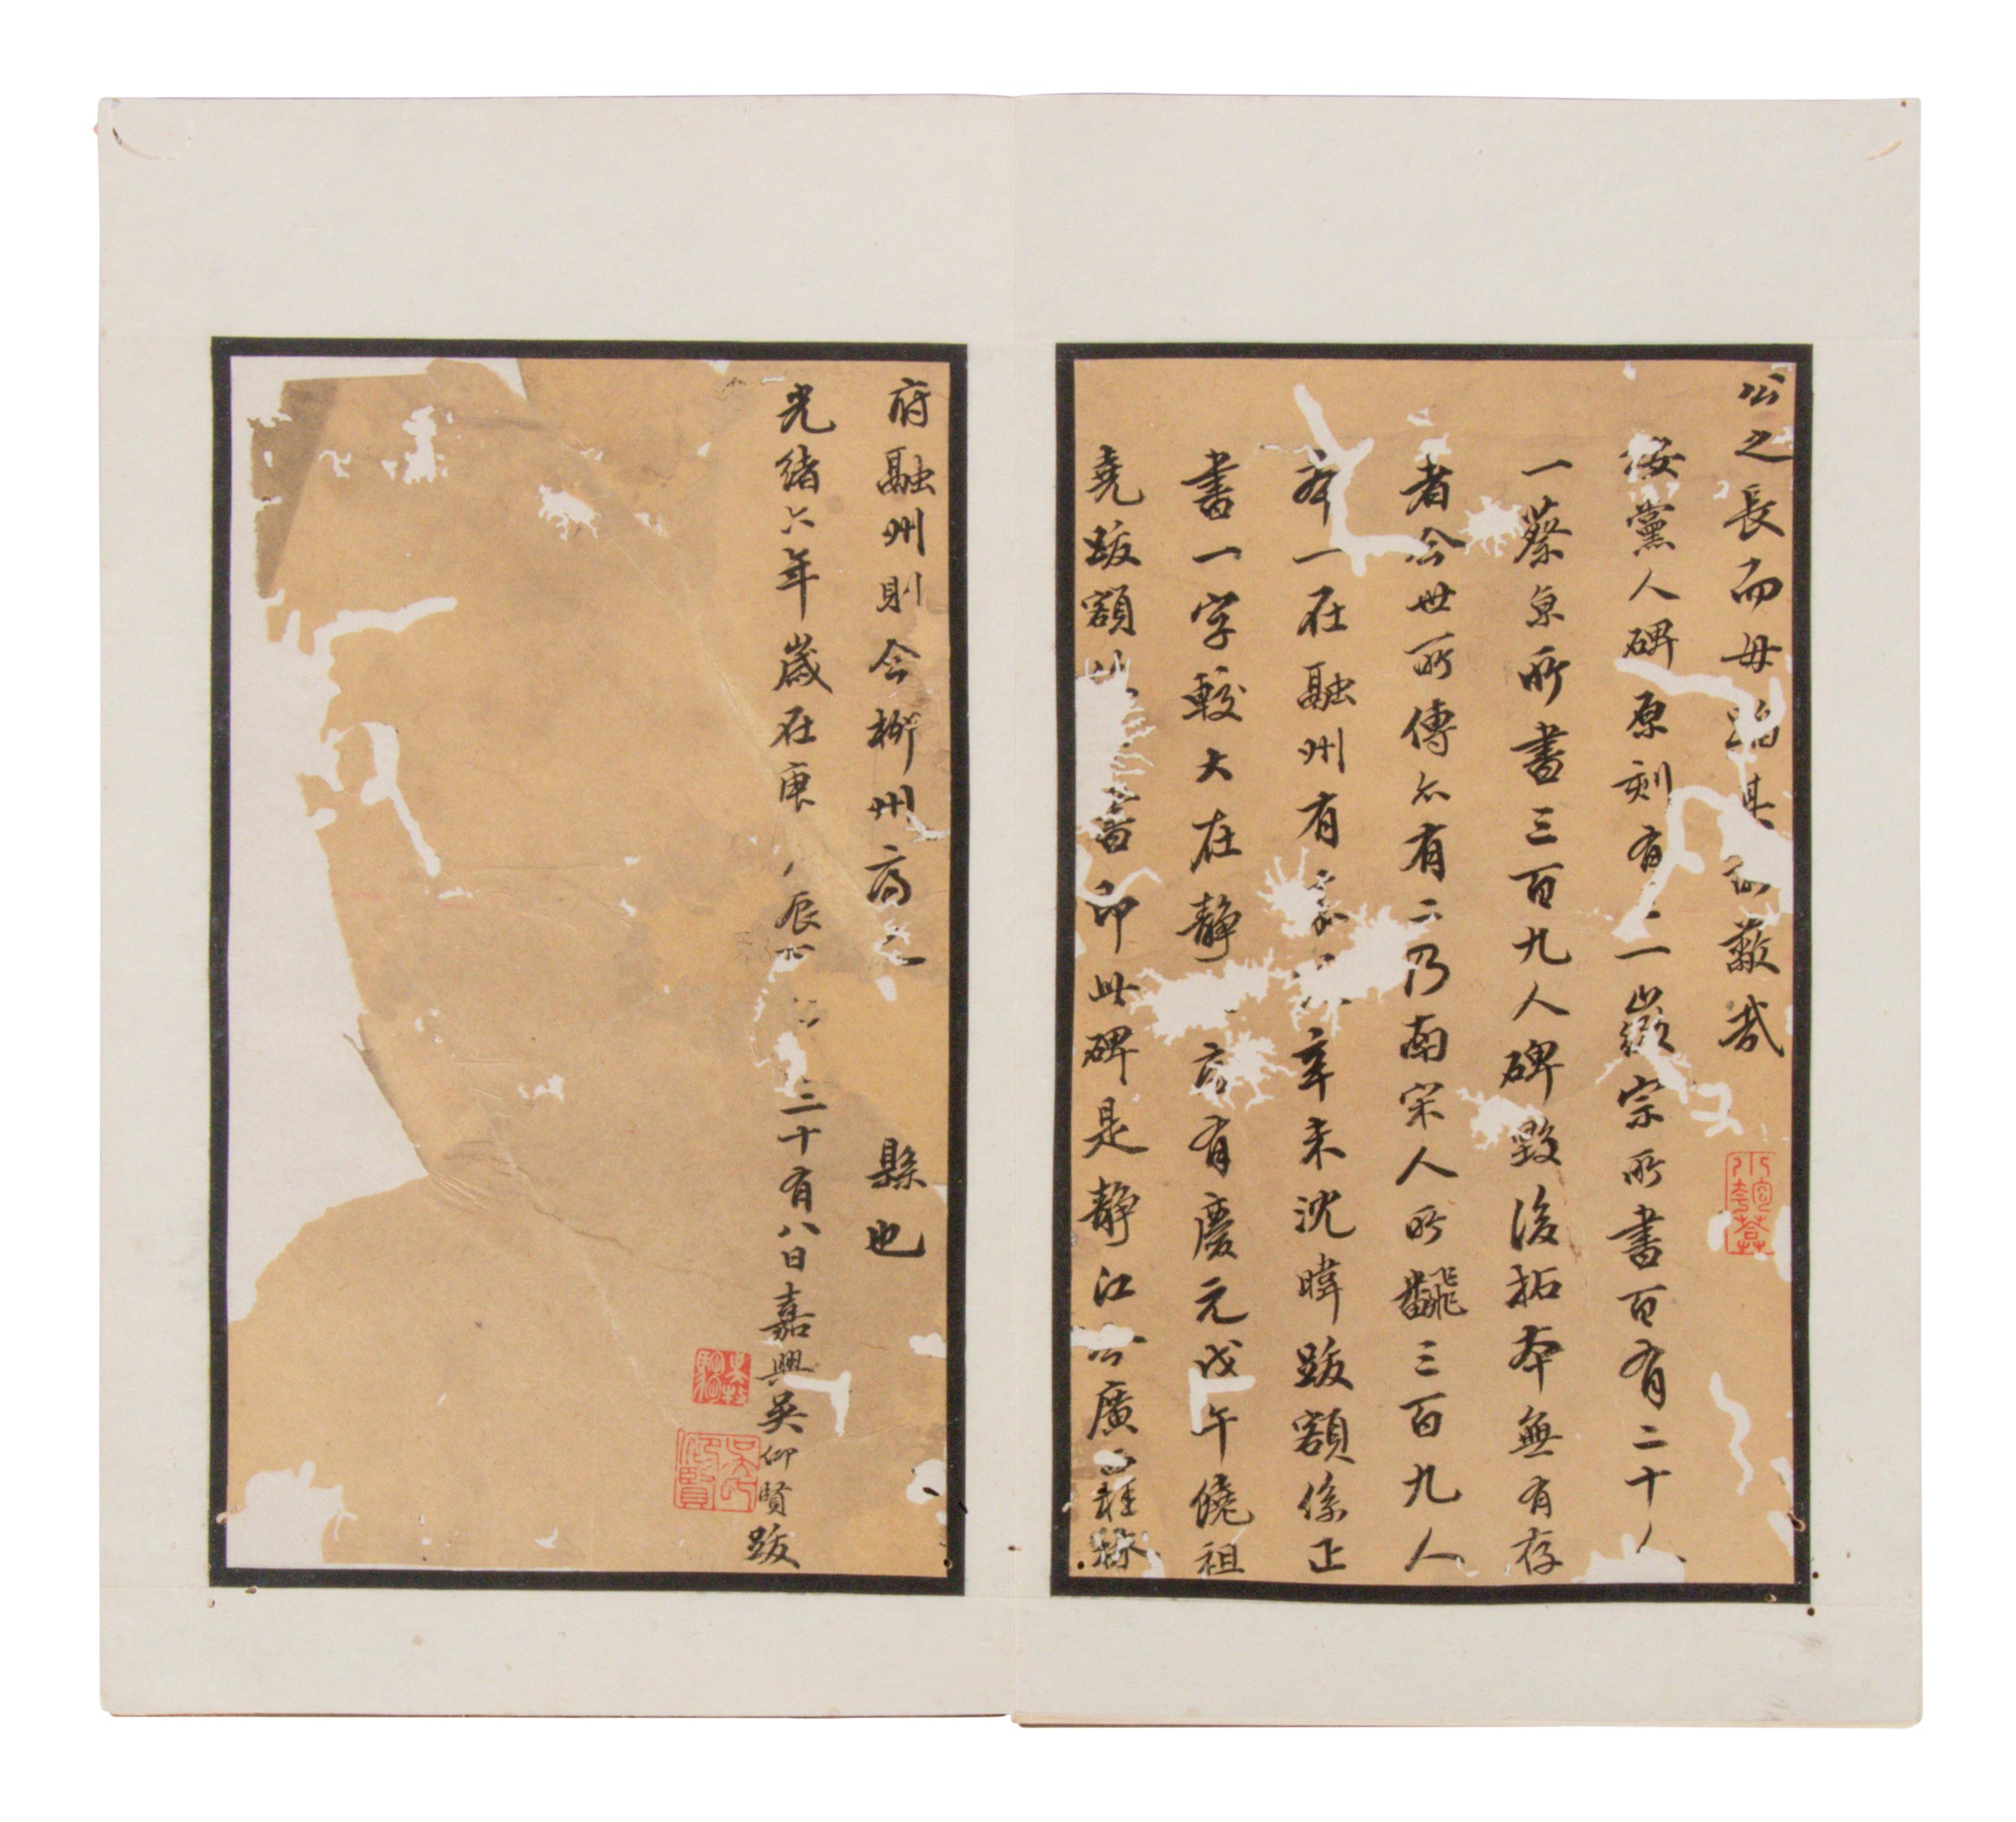 公之長而毋 其 蔽哉
按黨人碑原刻有二一徽宗所書百有二十人
一蔡京所書三百九人碑毀後拓本無有存
者今世所傳亦有二乃南宋人所翻三百九人
本一在融州有 辛未沈暐跋額係正
書一字較大在静 有慶元戊午饒祖
堯跋額 書即此碑是静江今廣西桂林
府融州則今柳州府之 縣也
光緒六年歲在庚辰 二十有八日嘉興吳仰賢跋
吳氏仰賢